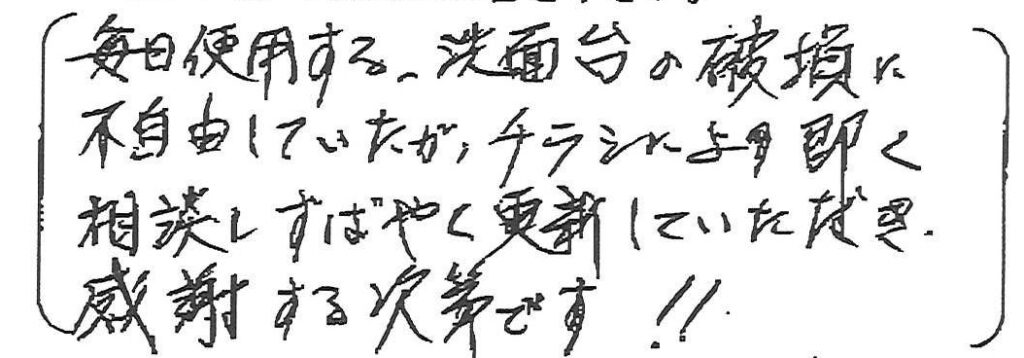 毎日使用する、洗面台の破損に
不自由していたが、チラシにより即く
相談しすばやく更新していただき、
感謝する次第です!!